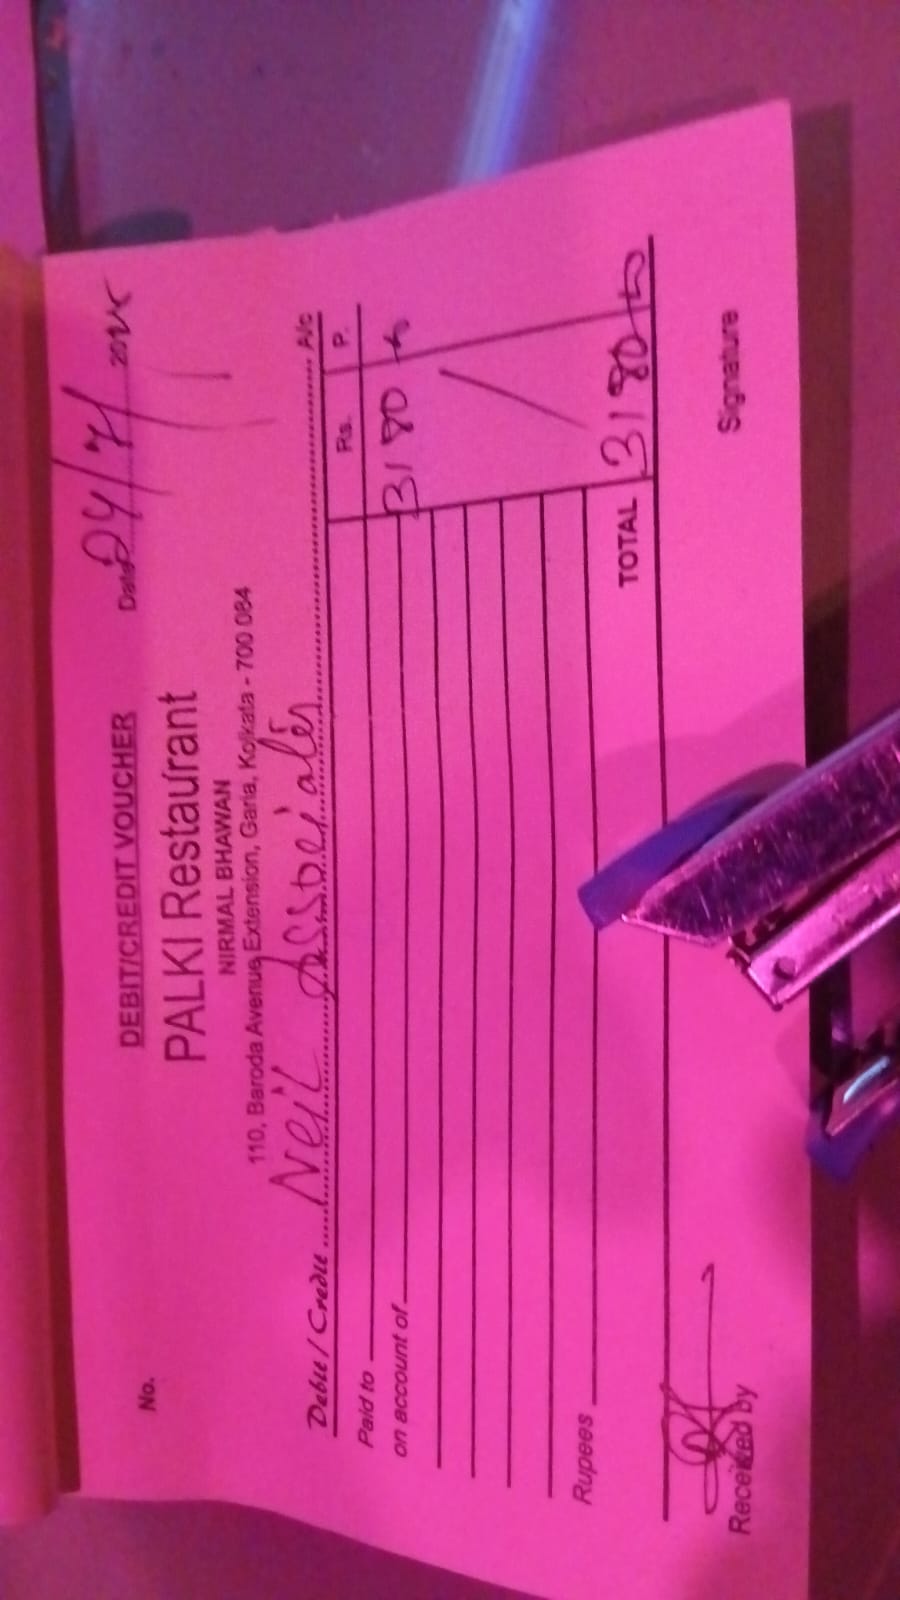 DEBIT/CREDIT VOUCHER
No.
Date 24/7/ 202
PALKI Restaurant
NIRMAL BHAWAN
110, Baroda Avenue Extension, Garia, Kolkata - 700 084
Debit / Credit Neil Associates A/c
Rs. P.
Paid to
on account of 3180
Rupees
TOTAL 3180
Received by
Signature